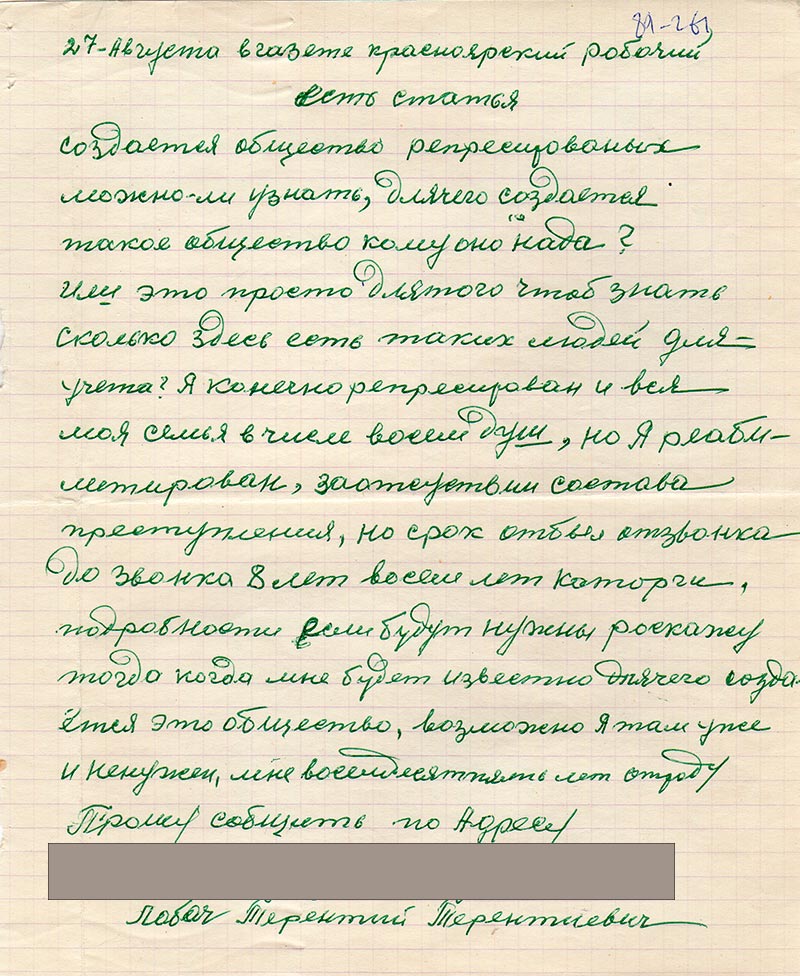 89-261
27-Августа вгазете красноярский рабочий
есть статья
создается общество репресированых
можно-ли узнать, длячего создается
такое общество кому оно нада?
Или это просто длятого чтоб знать
сколько здесь есть таких людей для-
учета? Я конечно репресирован и вся
моя семья в числе восем душ, но Я реаби-
летирован, заотсуствии состава
преступления, но срок отбыл отзвонка
до звонка 8 лет восем лет каторги,
подробности если будут нужны роскажу
тогда когда мне будет известно длячего созда-
ётся это общество, возможно Я там уже
и ненужен, мне восемдесятпять лет отроду
Прошу собщить по Адресу
Лобач Терентий Терентиевич